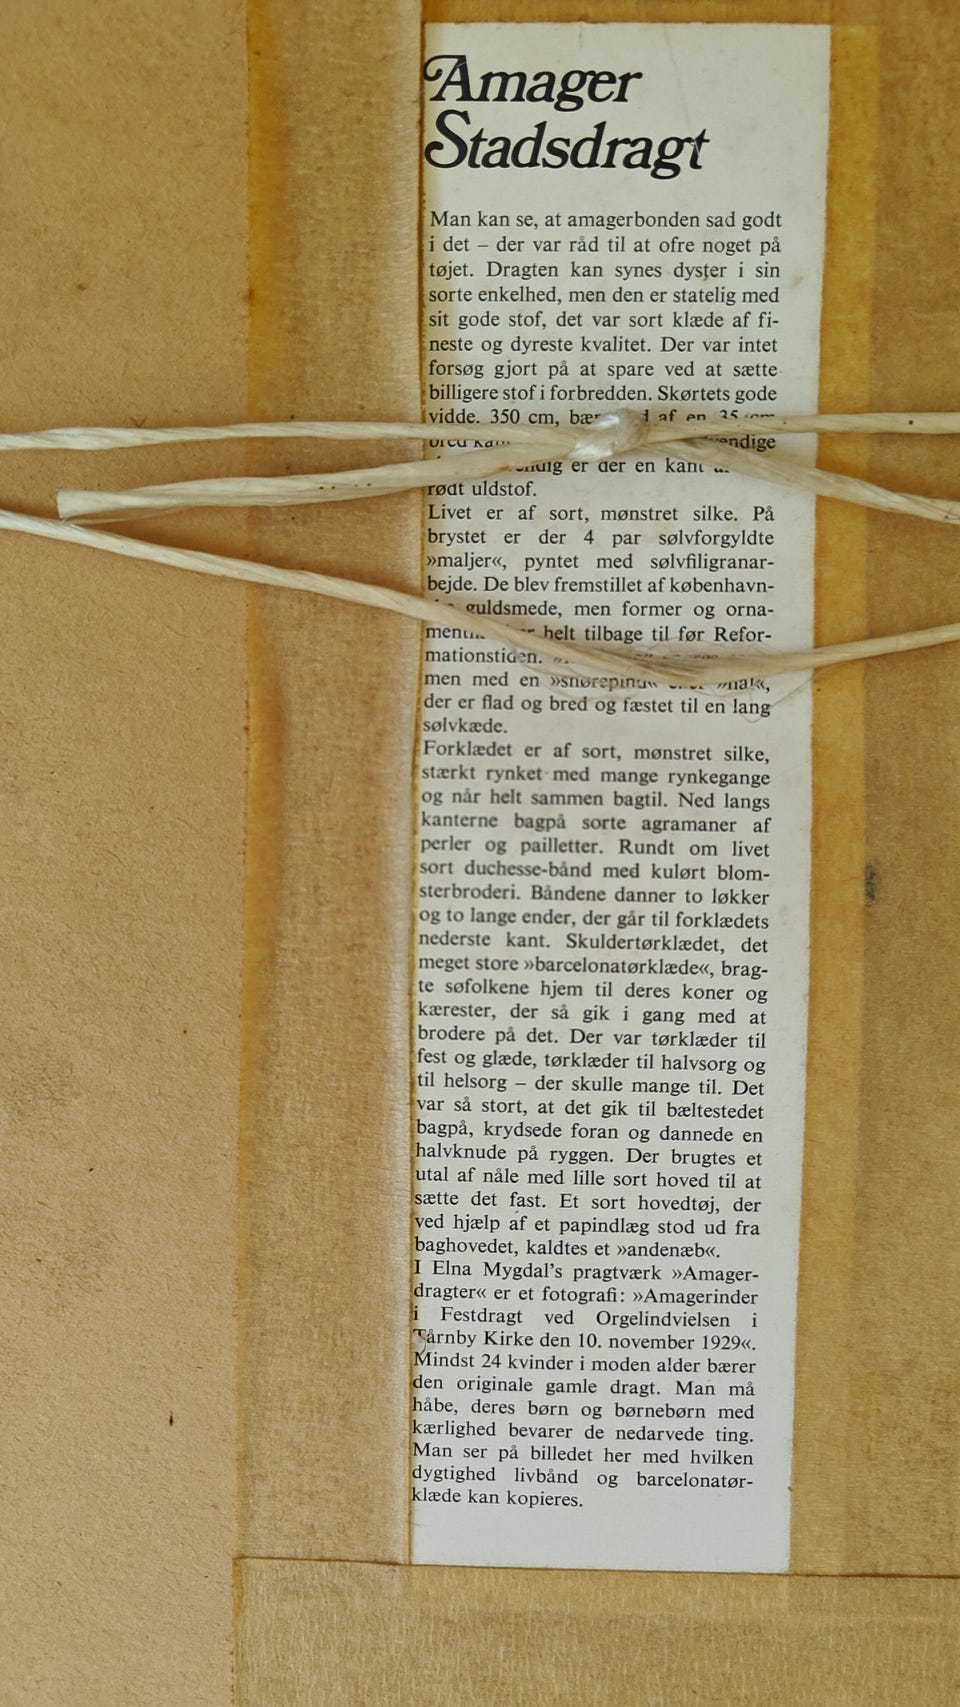 Amager
Stadsdragt
Man kan se, at amagerbonden sad godt
i det – der var råd til at ofre noget på
tøjet. Dragten kan synes dyster i sin
sorte enkelhed, men den er statelig med
sit gode stof, det var sort klæde af fi-
neste og dyreste kvalitet. Der var intet
forsøg gjort på at spare ved at sætte
billigere stof i forbredden. Skørtets gode
vidde. 350 cm, af en 35 cm
bred
er der en kant
rødt uldstof.
Livet er af sort, mønstret silke. På
brystet er der 4 par sølvforgyldte
»maljer«, pyntet med sølvfiligranar-
bejde. De blev fremstillet af københavn-
guldsmede, men former og orna-
helt tilbage til før Refor-
mationstiden.
men med en »snørepind«
der er flad og bred og fæstet til en lang
sølvkæde.
Forklædet er af sort, mønstret silke,
stærkt rynket med mange rynkegange
og når helt sammen bagtil. Ned langs
kanterne bagpå sorte agramaner af
perler og pailletter. Rundt om livet
sort duchesse-bånd med kulørt blom-
sterbroderi. Båndene danner to løkker
og to lange ender, der går til forklædets
nederste kant. Skuldertørklædet, det
meget store »barcelonatørklæde«, brag-
te søfolkene hjem til deres koner og
kærester, der så gik i gang med at
brodere på det. Der var tørklæder til
fest og glæde, tørklæder til halvsorg og
til helsorg – der skulle mange til. Det
var så stort, at det gik til bæltestedet
bagpå, krydsede foran og dannede en
halvknude på ryggen. Der brugtes et
utal af nåle med lille sort hoved til at
sætte det fast. Et sort hovedtøj, der
ved hjælp af et papindlæg stod ud fra
baghovedet, kaldtes et »andenæb«.
I Elna Mygdal's pragtværk »Amager-
dragter« er et fotografi: »Amagerinder
i Festdragt ved Orgelindvielsen i
Tårnby Kirke den 10. november 1929«.
Mindst 24 kvinder i moden alder bærer
den originale gamle dragt. Man må
håbe, deres børn og børnebørn med
kærlighed bevarer de nedarvede ting.
Man ser på billedet her med hvilken
dygtighed livbånd og barcelonatør-
klæde kan kopieres.